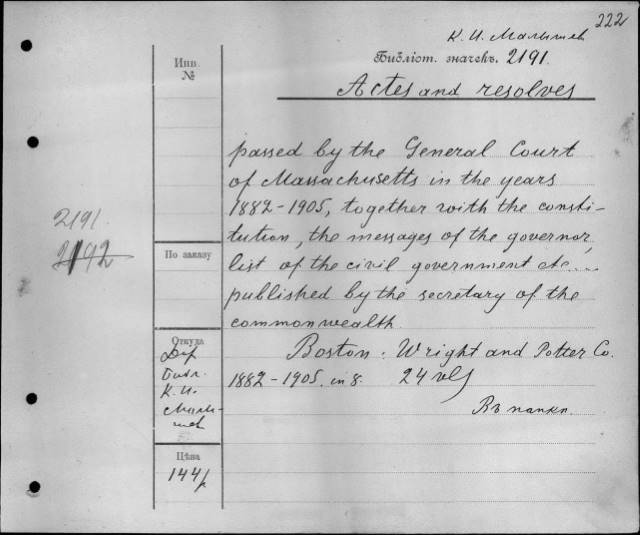 222
К. И. Малышев
Библіот. значекъ. 2191.
Actes and resolves
Инв.
№
passed by the General Court
of Massachusetts in the years
1882-1905, together with the consti-
tution, the messages of the governor,
list of the civil government etc....
published by the secretary of the
commonwealth.
Boston. Wright and Potter Co.
1882-1905. in 8. 24 vls
Въ папкѣ.
2191.
2192
По заказу
Откуда
Библ.
К. И.
Малы-
шев
Цѣна
144